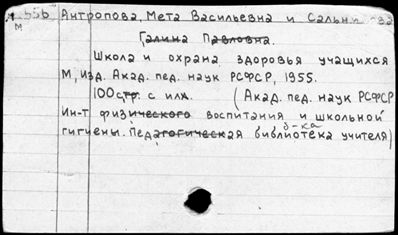 556 Антропова, Мета Васильевна и Сальникова
М Галина Павловна.
Школа и охрана здоровья учащихся
М, Изд. Акад. пед. наук РСФСР, 1955.
100 стр. с илл. (Акад. пед. наук РСФСР
Ин-т физического воспитания и школьной
гигиены. Педагогическая библиотека учителя)
б-ка